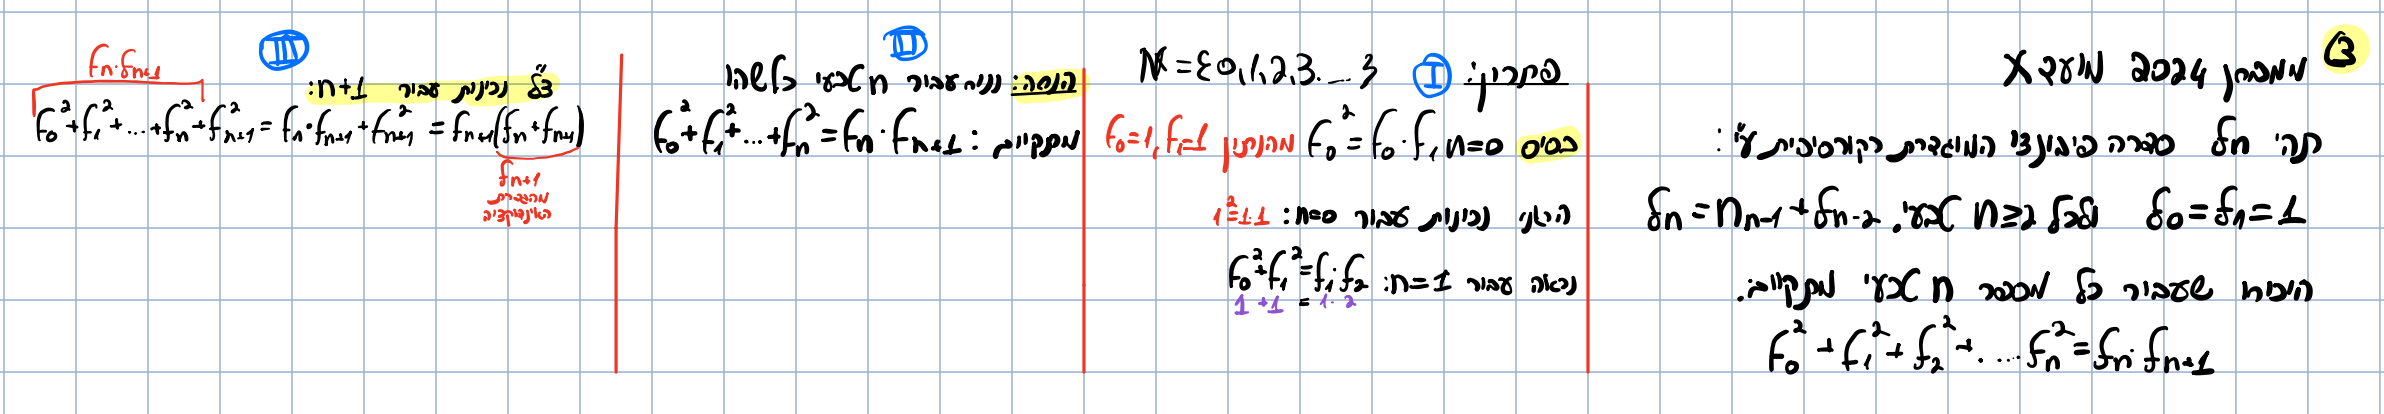 ③ ממבחן 2024 מועד א
תהי fn סדרה פיבונצי המוגדרת רקורסיבית ע"י:
f₀ = f₁ = 1 ולכל n ≥ 2 טבעי. fn = nₙ₋₁ + fn-2
הוכיחו שעבור כל מספר n טבעי מתקיים.
f₀² + f₁² + f₂² + .... fn² = fn · fn+1
פתרון: I N = {0,1,2,3....}
בסיס n=0 f₀² = f₀ · f₁ מהנתון f₀=1, f₁=1
הראנו נכונות עבור n=0: 1²=1·1
נראה עבור n=1: f₀²+f₁²=f₁·f₂
1+1 = 1·2
II
הנחה: נניח עבור n טבעי כלשהו
מתקיים: f₀²+f₁²+...+fn² = fn · fn+1
III
צ"ל נכונות עבור n+1:
fn·fn+1
f₀²+f₁²+...+fn²+fn+1² = fn·fn+1+fn+1² = fn+1(fn+fn+1)
fn+1
מהגדרת
האינדוקציה